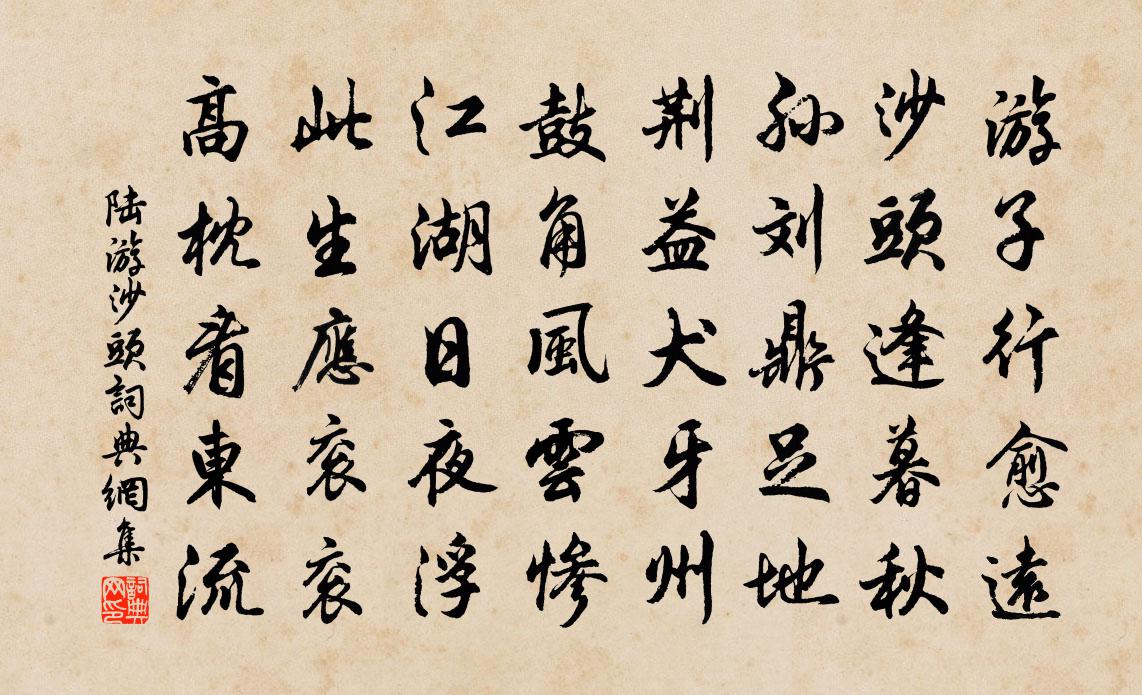 游子行愈遠
沙頭逢暮秋
孫刘鼎足地
荆益犬牙州
鼓角風雲慘
江湖日夜浮
此生應衮衮
高枕看東流
陆游沙頭詞典網集
詞典网印